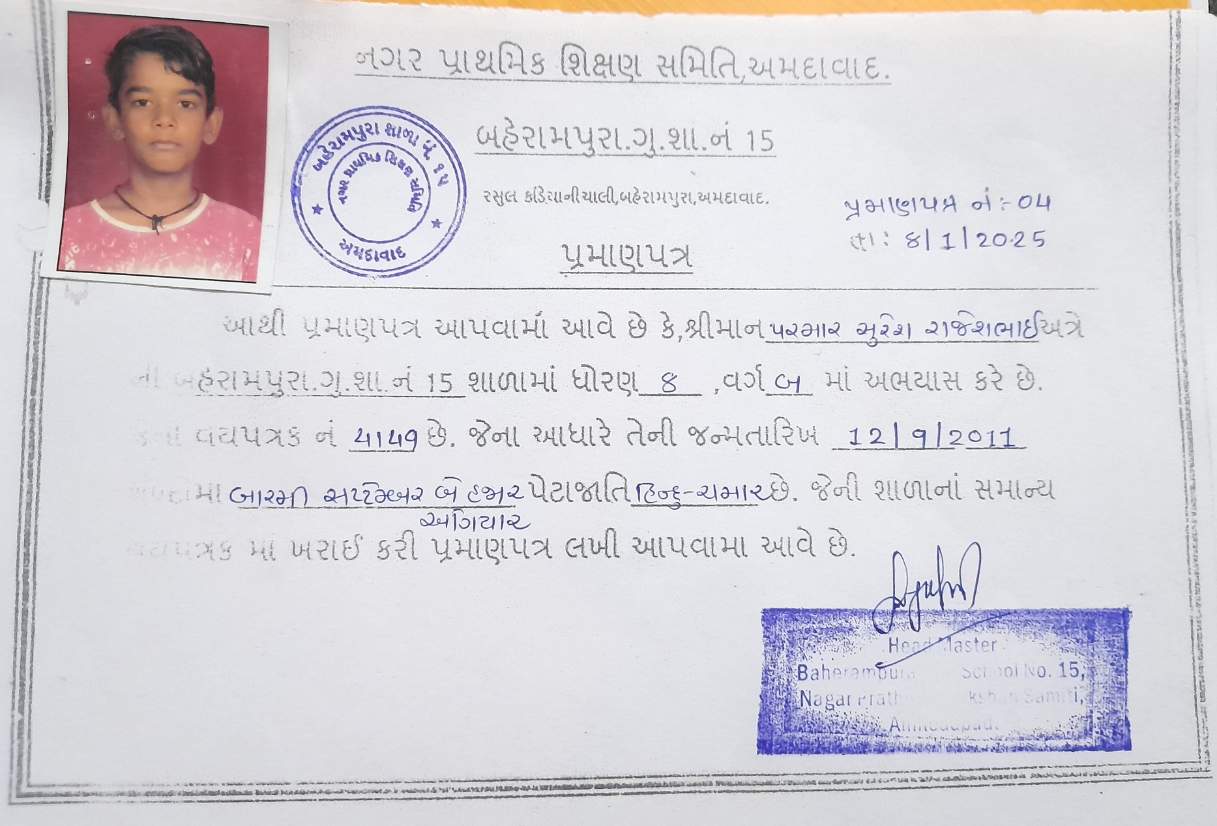 નગર પ્રાથમિક શિક્ષણ સમિતિ,અમદાવાદ.
બહેરામપુરા.ગુ.શા.નં 15
બહેરામપુરા શાળા નં. ૧૫
નગર પ્રાથમિક શિક્ષણ સમિતિ
અમદાવાદ
રસુલ કડિયાનીચાલી,બહેરામપુરા,અમદાવાદ.
પ્રમાણપત્ર નં:- 04
તા: ૪/1/2025
પ્રમાણપત્ર
આથી પ્રમાણપત્ર આપવામાઁ આવે છે કે,શ્રીમાન પરમાર સુરેશ રાજેશભાઈ અત્રે
ની બહેરામપુરા.ગુ.શા.નં 15 શાળામાં ધોરણ 8 ,વર્ગ બ માં અભયાસ કરે છે.
વયપત્રક નં 4149 છે. જેના આધારે તેની જન્મતારિખ 12/9/2011
બારમી સપ્ટેમ્બર બે હજાર પેટાજાતિ હિન્દુ-ચમાર છે. જેની શાળાનાં સમાન્ય
અગિયાર
વયપત્રક માં ખરાઈ કરી પ્રમાણપત્ર લખી આપવામા આવે છે.
Head Master
Baherampura School No. 15,
Nagar Samiti,